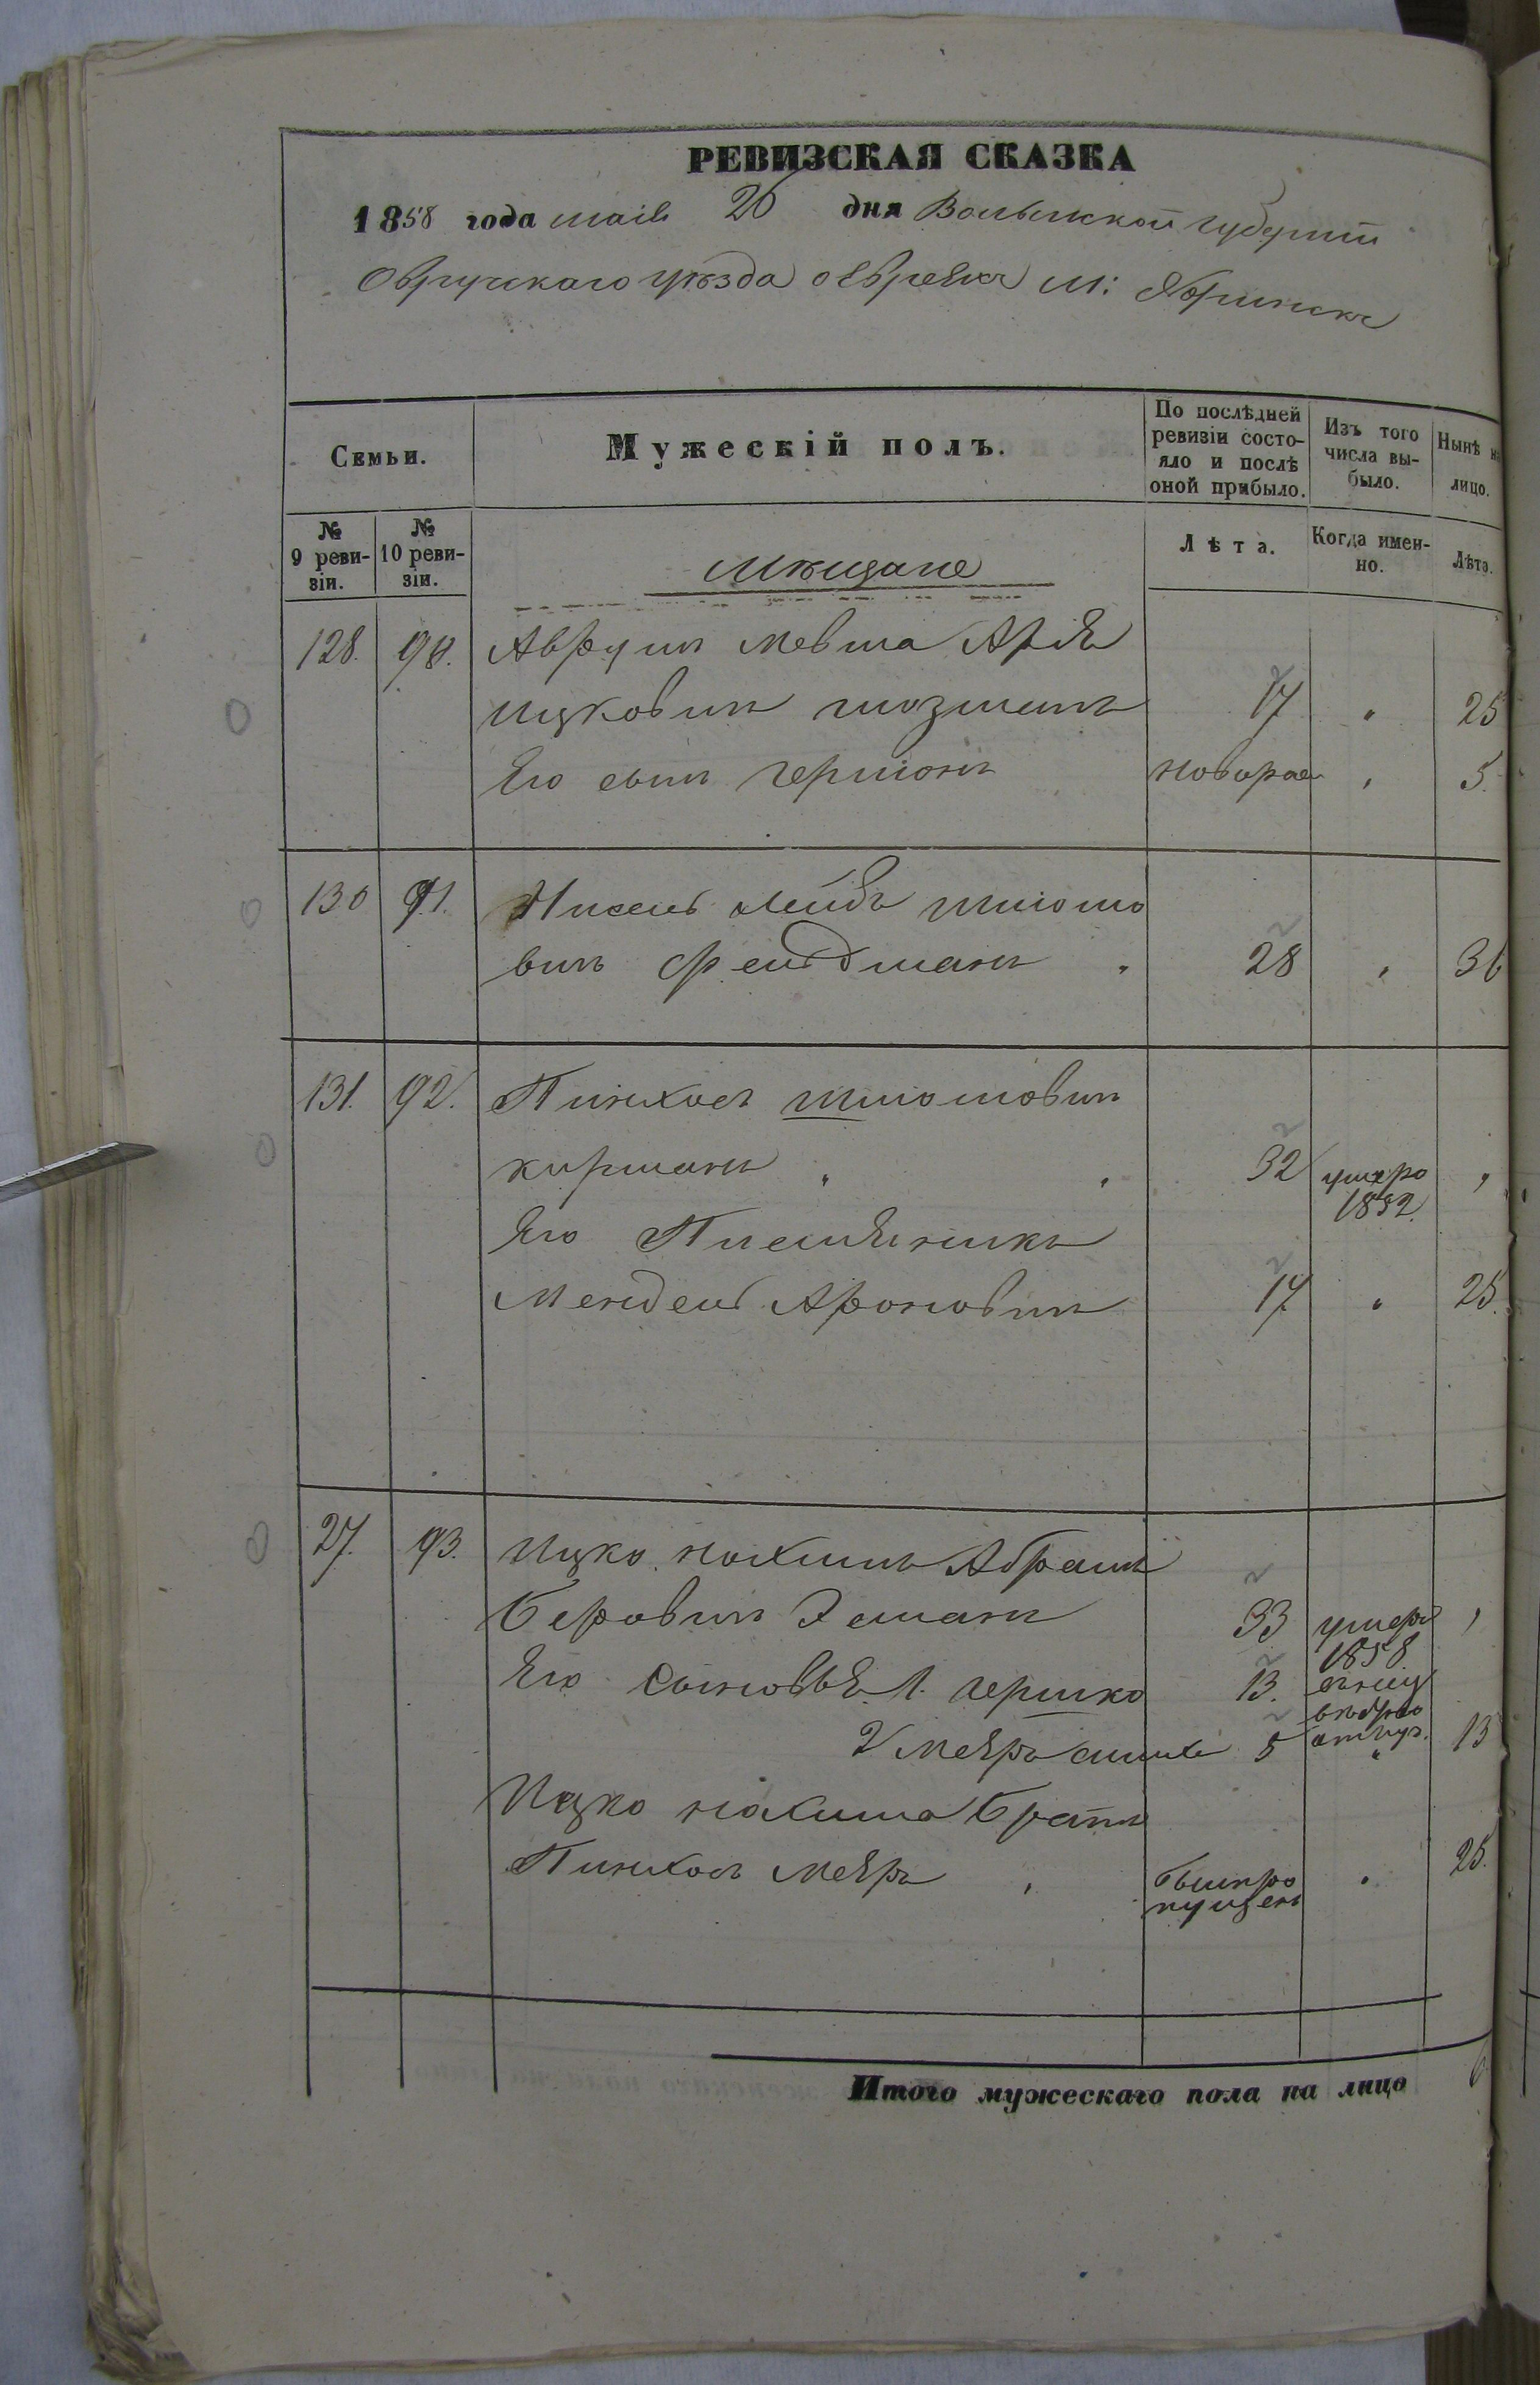 РЕВИЗСКАЯ СКАЗКА
1858 года маія 20 дня Волынской губерніи
Овручскаго уѣзда о Евреяхъ м:
Семьи.
Мужескій полъ.
По послѣдней ревизіи состояло и послѣ оной прибыло.
Изъ того числа выбыло.
Нынѣ на лицо.
№ 9 ревизіи.
№ 10 ревизіи.
Лѣта.
Когда именно.
Лѣта.
Мѣщане
128. 90. Аврумъ Мевша Арія
Ицковичъ 17 " 25
Его сынъ Гершонъ новорож " 5.
130 91. Лейбъ Шліомо
вичъ Фельдманъ " 28 " 36
131. 92. Пинхосъ Шліомовичъ
" " 32 умеръ 1852. "
Его Племянникъ
Мендель Ароновичъ 17 " 25.
27. 93. Ицко Нохимъ Абрамъ
Беровичъ 33 умеръ 1858 "
Его Сыновья 1. Гершко 13.
2 Меяръ 5 " 13
Ицко Нохима Братъ
Пинхосъ Меяръ " былъ пропущенъ " 25.
Итого мужескаго пола на лицо 6